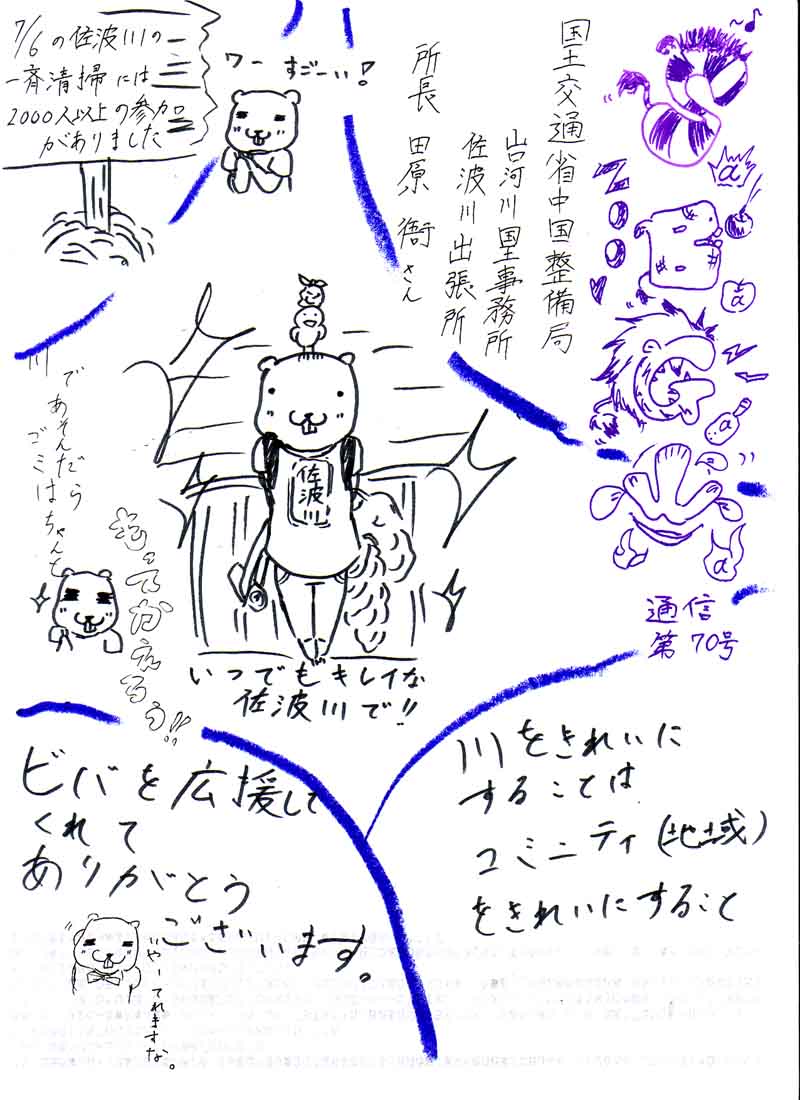 7/6の佐波川の
一斉清掃には
2000人以上の参加
がありました
ワー すごーい!
国土交通省中国整備局
山口河川国土事務所
佐波川出張所
所長 田原 衛さん
α
α
α
α
通信
第70号
川
であそんだら
ゴミはちゃんと
もってかえろう!!
佐波川
いつでもキレイな
佐波川で!!
ビバを広援して
くれて
ありがとう
ございます。
いやーてれますな。
川をきれいに
することは
コミニティ(地域)
をきれいにすること